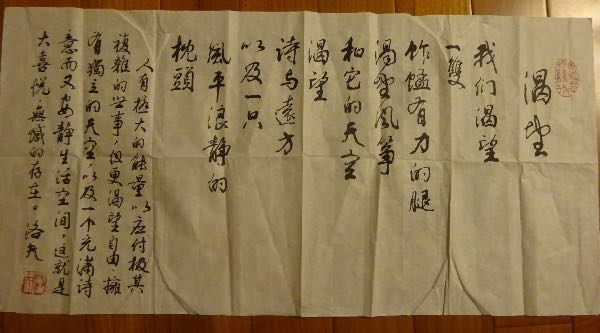 渴望
我们渴望
一雙
蚱蜢有力的腿
渴望風箏
和它的天空
渴望
诗与遠方
以及一只
風平浪静的
枕頭
人有極大的能量以应付极其
複雜的世事，但更渴望自由、擁
有獨立的天空以及一个充满诗
意而又安静生活空间，这就是
大喜悦、無憾的存在。洛夫